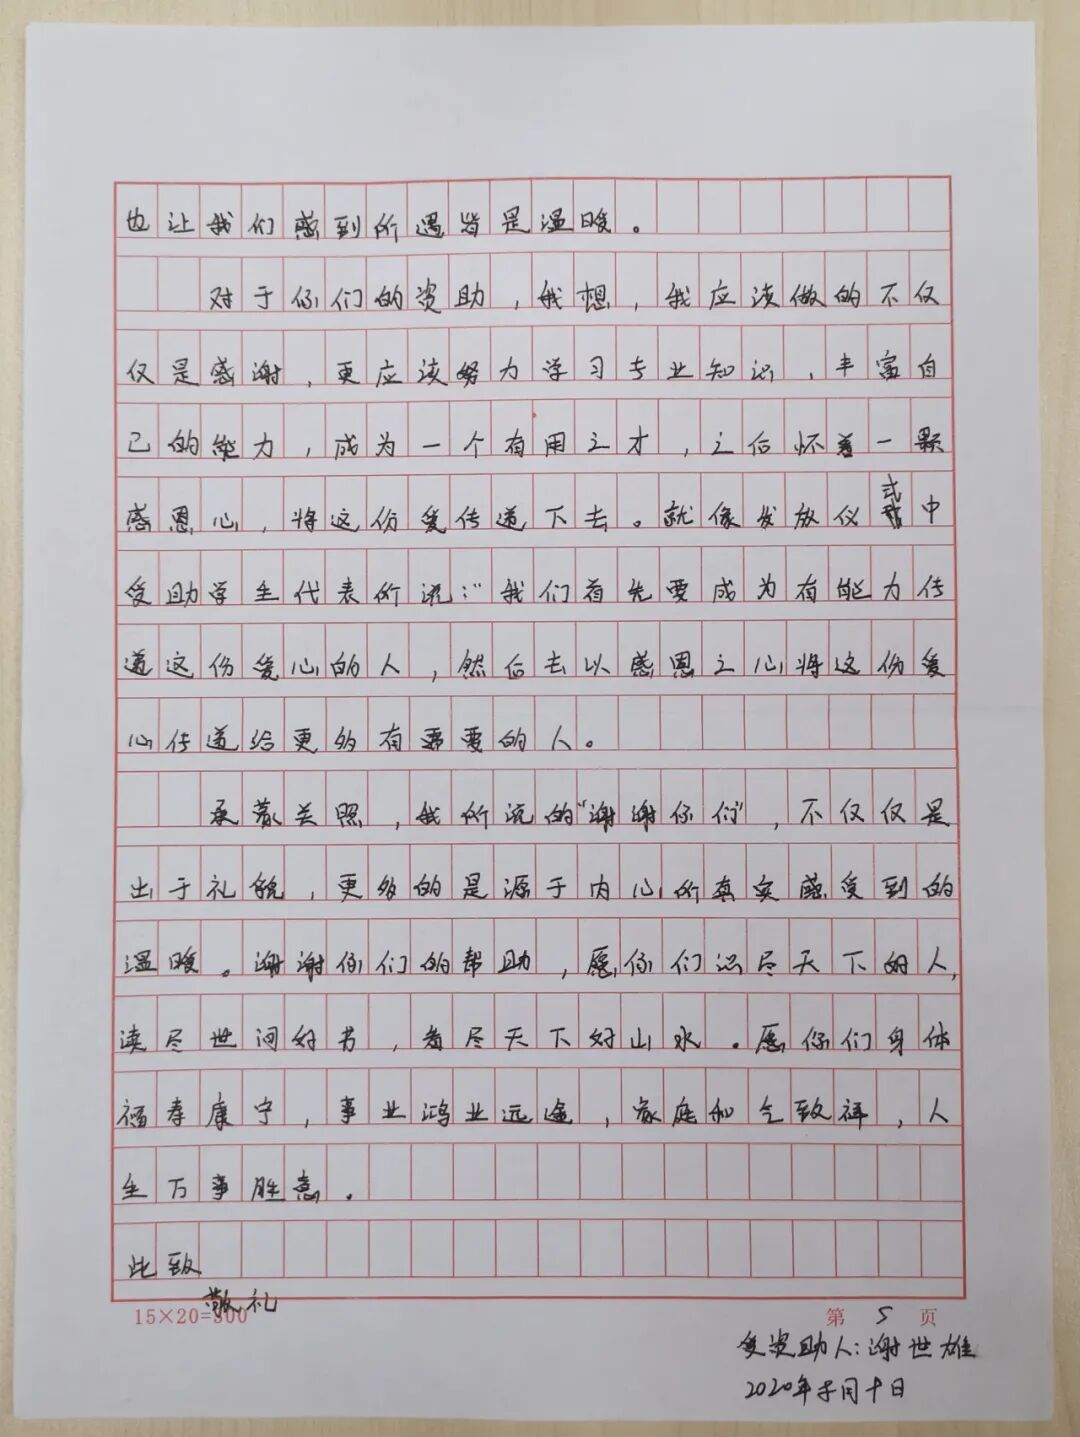 也让我们感到所遇皆是温暖。
对于你们的资助，我想，我应该做的不仅
仅是感谢，更应该努力学习专业知识，丰富自
己的能力，成为一个有用之才，之后怀着一颗
感恩心，将这份爱传递下去。就像发放仪式中
受助学生代表所说：“我们首先要成为有能力传
递这份爱心的人，然后去以感恩之心将这份爱
心传递给更多有需要的人。
承蒙关照，我所说的“谢谢你们”，不仅仅是
出于礼貌，更多的是源于内心所真实感受到的
温暖。谢谢你们的帮助，愿你们识尽天下好人，
读尽世间好书，看尽天下好山水。愿你们身体
福寿康宁，事业鸿业远途，家庭和气致祥，人
生万事胜意。
此致
敬礼
15×20=300
第 5 页
受资助人：谢世雄
2020年 月十日